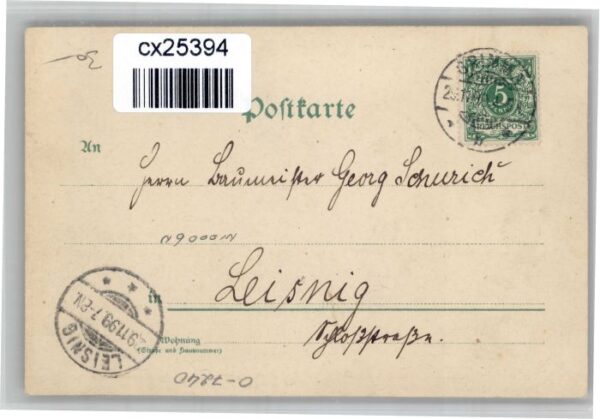 cx25394
Postkarte
An
Herrn Baumeister Georg Schurich
in Leisnig
Schloßstraße.
Wohnung
(Straße und Hausnummer)
GRIMMA
5
REICHSPOST
LEISNIG
9.11.99.7-8N.
0-7240